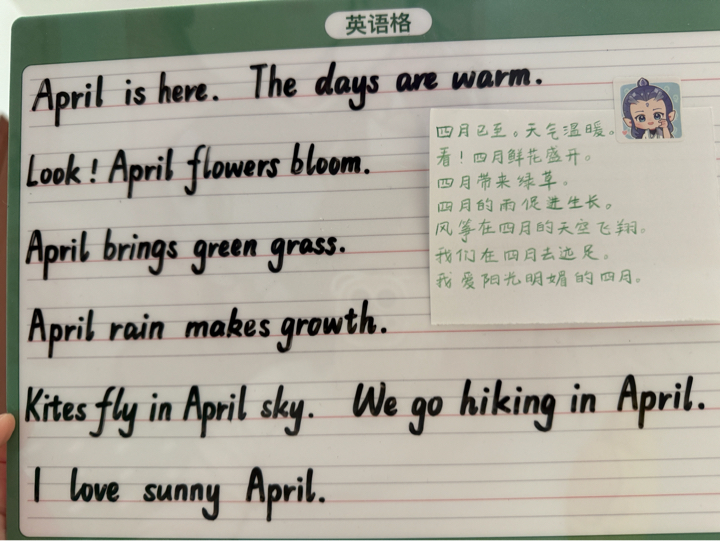 英语格
April is here. The days are warm.
Look! April flowers bloom.
April brings green grass.
April rain makes growth.
Kites fly in April sky. We go hiking in April.
I love sunny April.
四月已至。天气温暖。
看!四月鲜花盛开。
四月带来绿草。
四月的雨促进生长。
风筝在四月的天空飞翔。
我们在四月去远足。
我爱阳光明媚的四月。